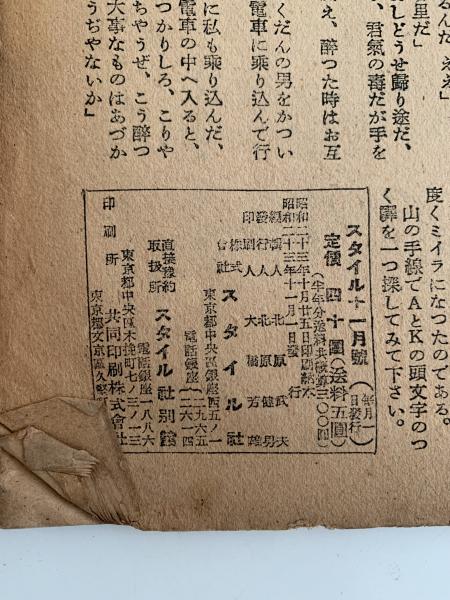 るんだ、ええ」
里だ」
しどうせ歸り途だ、
、君氣の毒だが手を
え、醉つた時はお互
くだんの男をかつい
電車に乘り込んで行
に私も乘り込んだ、
電車の中へ入ると、
つかりしろ、こりや
ちやうぜ、こう醉つ
大事なものはあづか
うぢやないか」
度くミイラになつたのである。
山の手線でAとKの頭文字のつ
く驛を一つ探してみて下さい。
スタイル十一月號(每月一日發行)
定價 四十圓(送料五圓)
昭和二十三年十月廿五日印刷納本
昭和二十三年十一月一日發行
編輯人 北原武夫
發行人 北原
印刷人 大橋芳雄
東京都中央區銀座西五ノ一
株式會社 スタイル社
電話銀座
直接豫約取扱所 スタイル社別館
東京都中央區木挽町七ノ三ノ三
電話銀座一八八六
印刷所 共同印刷株式會社
東京都文京區久